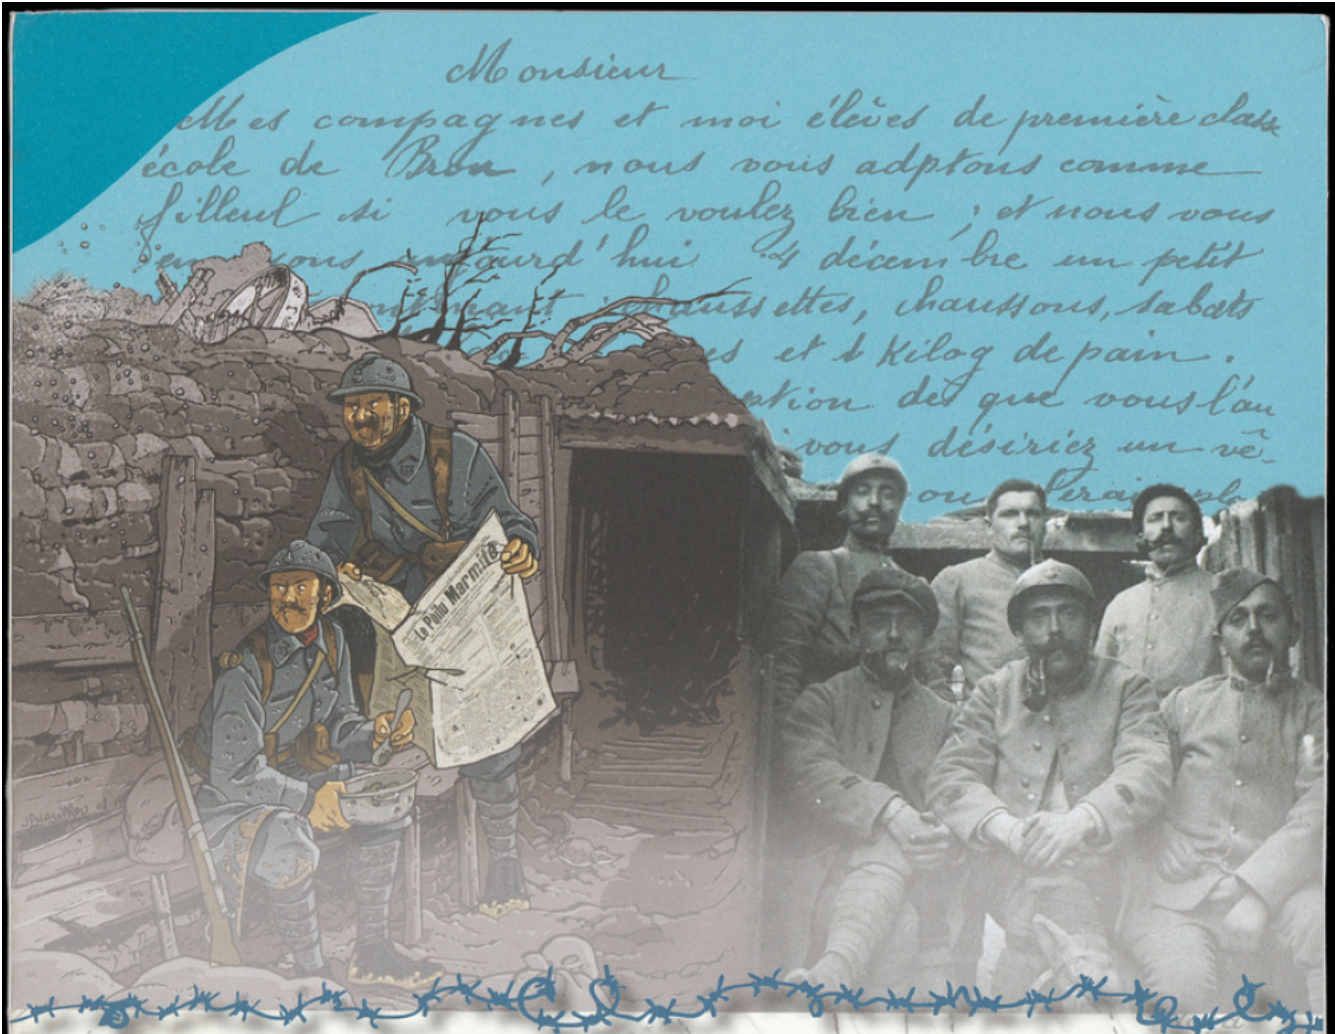 Monsieur
Mes compagnes et moi élèves de première classe
école de Bron, nous vous adptons comme
filleul si vous le voulez bien ; et nous vous
aujourd'hui 4 décembre un petit
chaussettes, chaussons, sabots
et 1 Kilog de pain.
des que vous l'au
vous désiriez un vê-
Le Poilu Marmité